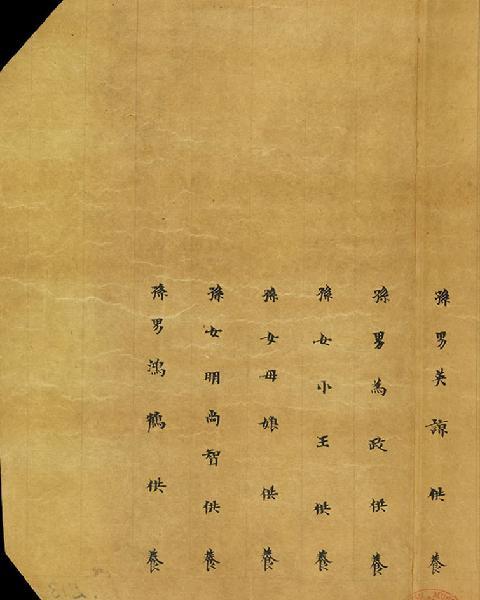 孫男英諒供養
孫男為政供養
孫女小王供養
孫女母娘供養
孫女明尚智供養
孫男鴻鶴供養